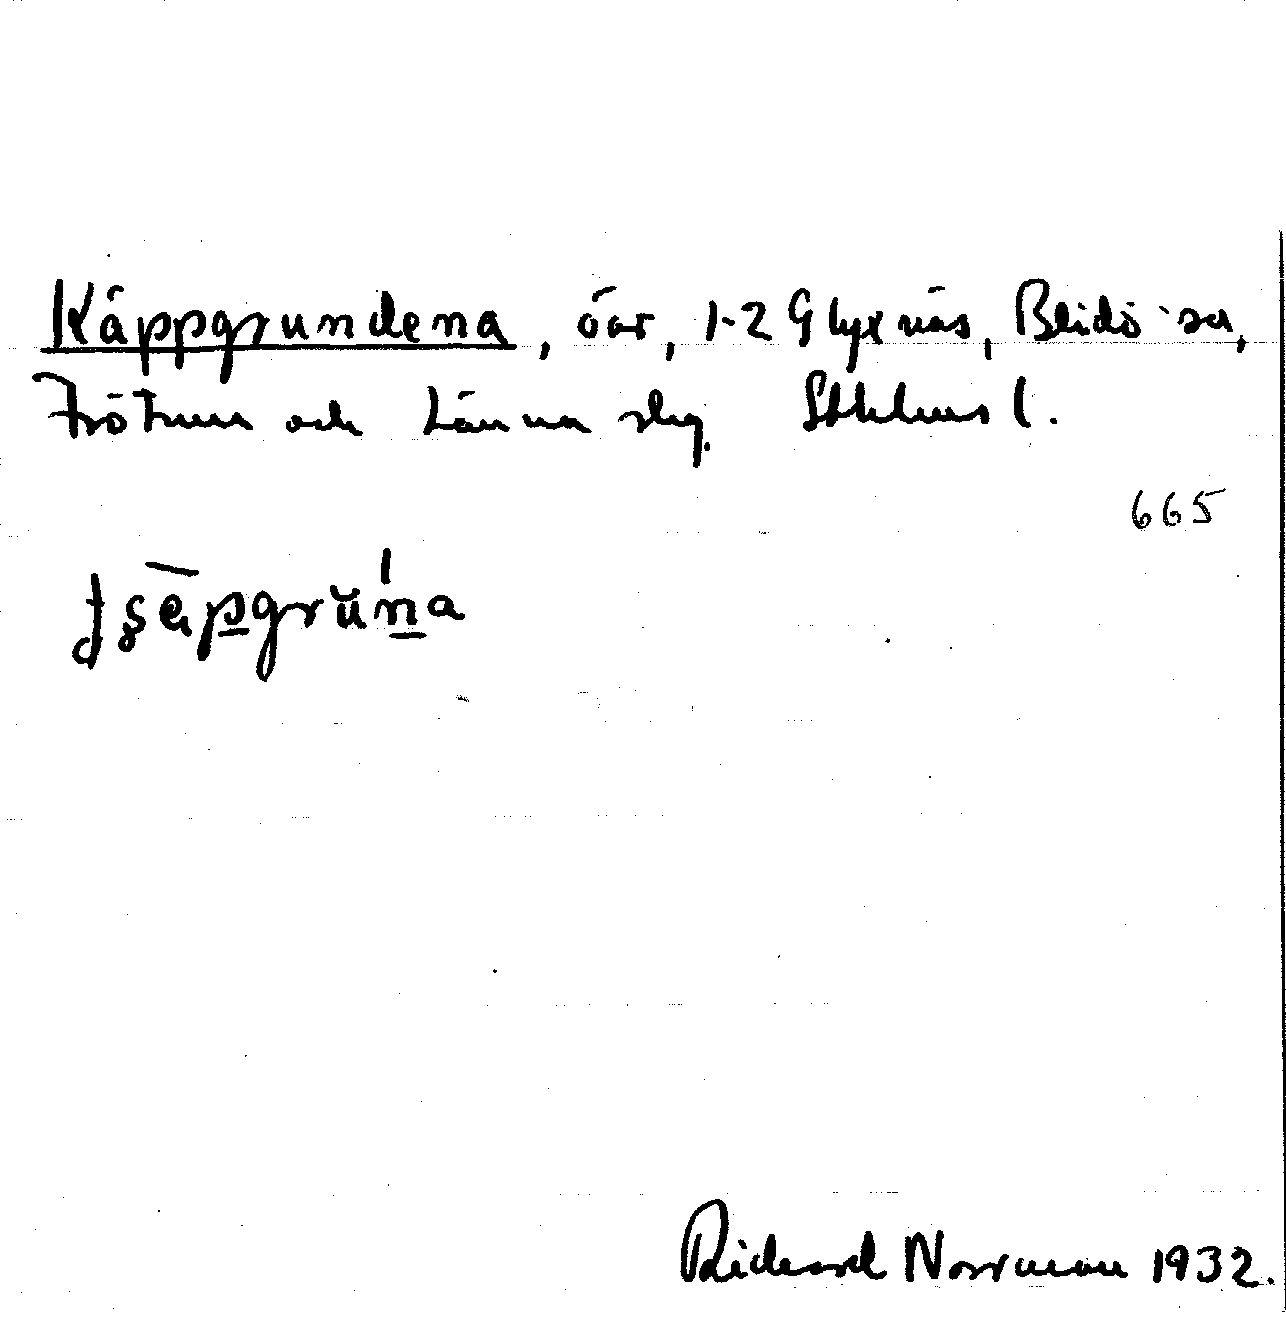 Käppgrundena, öar, 1-2 Glyxnäs, Blidö sn,
Frötuna och Länna slg. Sthlms l.
665
Richard Norrman 1932.